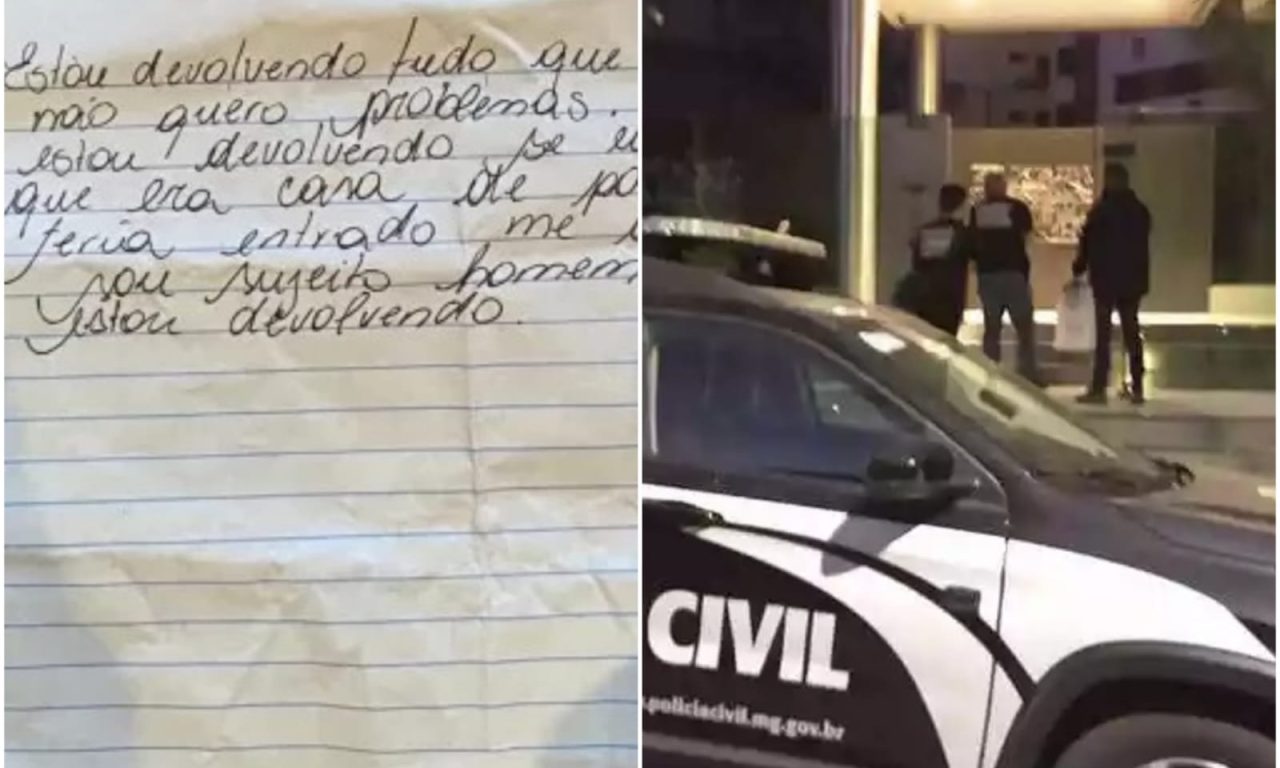 Estou devolvendo tudo que
não quero problemas.
estou devolvendo se
que era casa de
teria entrado me
sou sujeito homem
estou devolvendo.
CIVIL
.policiacivil.mg.gov.br